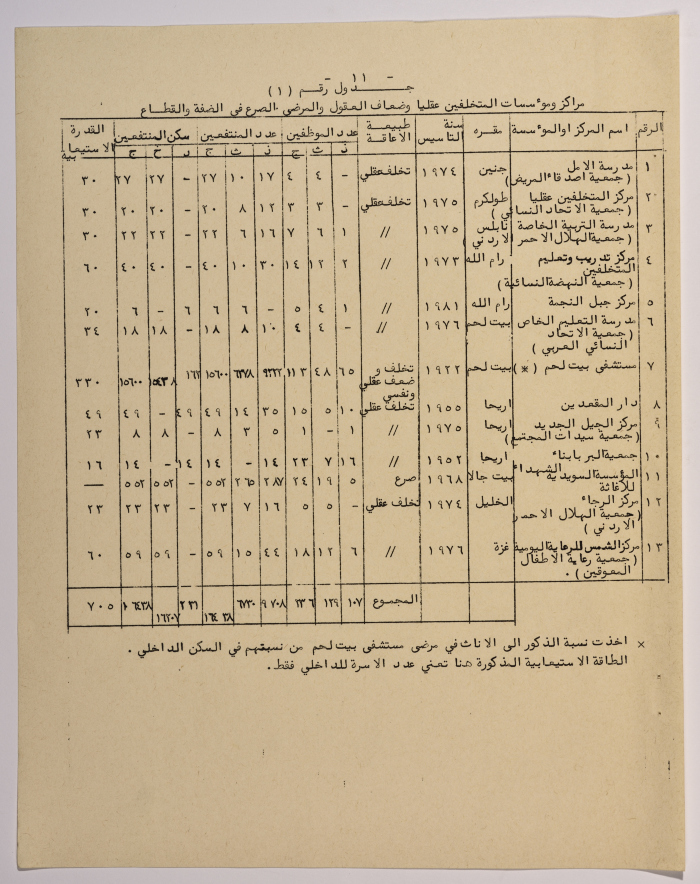 - ١١ -
جـــدول رقم (١)
مراكز ومؤسسات المتخلفين عقليا وضعاف العقول والمرضى الصرع في الضفة والقطاع
الرقم اسم المركز اوالمؤسسة مقره سنة التاسيس طبيعة الاعاقة عدد الموظفين عدد المنتفعين سكن المنتفعين القدرة الاستيعابية
ذ ث ج ذ ث ج د خ ج
١ مدرسة الامل جنين ١٩٧٤ تخلف عقلي - ٤ ٤ ١٧ ١٠ ٢٧ - ٢٧ ٢٧ ٣٠
(جمعية اصدقاء المريض)
٢ مركز المتخلفين عقليا طولكرم ١٩٧٥ تخلف عقلي - ٣ ٣ ١٢ ٨ ٢٠ - ٢٠ ٢٠ ٣٠
(جمعية الاتحاد النسائي)
٣ مدرسة التربية الخاصة نابلس ١٩٧٥ // ١ ٦ ٧ ١٦ ٦ ٢٢ - ٢٢ ٢٢ ٣٠
(جمعية الهلال الاحمر الاردني)
٤ مركز تدريب وتعليم رام الله ١٩٧٣ // ٢ ١٢ ١٤ ٣٠ ١٠ ٤٠ - ٤٠ ٤٠ ٦٠
المتخلفين
(جمعية النهضة النسائية)
٥ مركز جبل النجمة رام الله ١٩٨١ // ١ ٤ ٥ - ٦ ٦ ٦ - ٦ ٢٠
٦ مدرسة التعليم الخاص بيت لحم ١٩٧٦ // - ٤ ٤ ١٠ ٨ ١٨ - ١٨ ١٨ ٣٤
(جمعية الاتحاد
النسائي العربي)
٧ مستشفى بيت لحم (*) بيت لحم ١٩٢٢ تخلف و ٦٥ ٤٨ ١١٣ ٩٢٢٢ ٦٣٧٨ ١٥٦٠٠ ١٦٢ ١٥٤٣٨ ١٥٦٠٠ ٣٣٠
ضعف عقلي
ونفسي
٨ دار المقعدين اريحا ١٩٥٥ تخلف عقلي ١٠ ٥ ١٥ ٣٥ ١٤ ٤٩ ٤٩ - ٤٩ ٤٩
٩ مركز الجيل الجديد اريحا ١٩٧٥ // ١ - ١ ٥ ٣ ٨ - ٨ ٨ ٢٣
(جمعية سيدات المجتمع)
١٠ جمعية البر بابناء اريحا ١٩٥٢ // ١٦ ٧ ٢٣ ١٤ - ١٤ ١٤ - ١٤ ١٦
الشهداء
١١ المؤسسة السويدية بيت جالا ١٩٦٨ صرع ٥ ١٩ ٢٤ ٢٨٧ ٢٦٥ ٥٥٢ - ٥٥٢ ٥٥٢ —
للاغاثة
١٢ مركز الرجاء الخليل ١٩٧٤ تخلف عقلي - ٥ ٥ ١٦ ٧ ٢٣ - ٢٣ ٢٣ ٢٣
(جمعية الهلال الاحمر
الاردني)
١٣ مركز الشمس للرعاية اليومية غزة ١٩٧٦ // ٦ ١٢ ١٨ ٤٤ ١٥ ٥٩ - ٥٩ ٥٩ ٦٠
(جمعية رعاية الاطفال
المعوقين) .
المجموع ١٠٧ ١٢٩ ٢٣٦ ٩٧٠٨ ٦٧٣٠ ١٦٤٣٨ ٢٣١ ١٦٢٠٧ ١٦٤٣٨ ٧٠٥
× اخذت نسبة الذكور الى الاناث في مرضى مستشفى بيت لحم من نسبتهم في السكن الداخلي .
الطاقة الاستيعابية المذكورة هنا تعني عدد الاسرة للداخلي فقط .